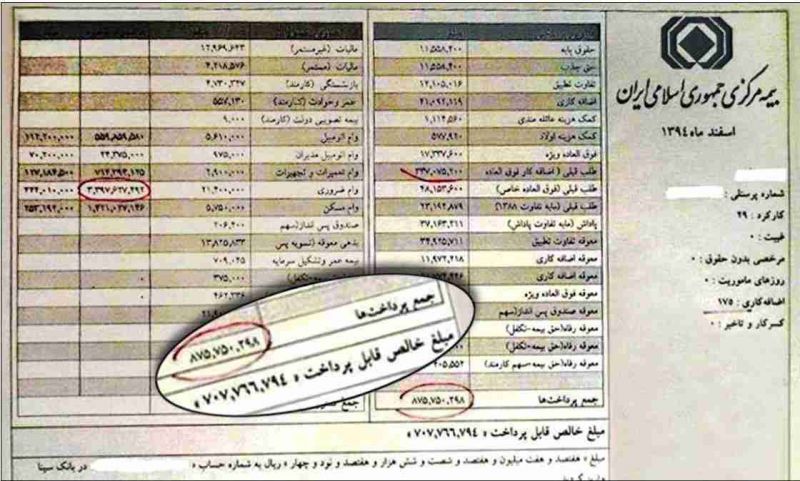 بیمه مرکزی جمهوری اسلامی ایران
اسفند ماه ۱۳۹۴
شماره پرسنلی :
کارکرد : ۲۹
غیبت : ۰
مرخصی بدون حقوق : ۰
روزهای ماموریت : ۰
اضافه‌کاری : ۱۷۵
کسر کار و تاخیر : ۰
حقوق پایه ۱۱,۵۵۸,۴۰۰
حق جذب ۱۱,۵۵۸,۴۰۰
تفاوت تطبیق ۱۲,۱۰۵,۰۱۶
اضافه کاری ۴۱,۰۹۲,۱۱۹
کمک هزینه عائله مندی ۱,۱۱۴,۵۶۰
کمک هزینه اولاد ۵۷۷,۹۲۰
فوق العاده ویژه ۱۷,۳۳۷,۶۰۰
طلب قبلی ( اضافه کار فوق العاده ۳۳۷,۰۷۵,۲۰۰
طلب قبلی (فوق العاده خاص) ۲۸,۱۵۳,۶۰۰
طلب قبلی (مابه تفاوت ۱۳۸۸) ۲۳,۱۹۲,۸۷۹
پاداش (مابه تفاوت پاداش) ۳۷,۱۶۳,۲۱۱
معوقه تفاوت تطبیق ۳۴,۹۲۵,۷۱۱
معوقه اضافه کاری ۱۱,۹۷۲,۴۱۸
معوقه اضافه کاری
معوقه فوق العاده ویژه
معوقه صندوق پس انداز(سهم
معوقه رفاه(حق بیمه-تکفل)
معوقه رفاه(حق بیمه-تکفل)
معوقه رفاه(حق بیمه-سهم کارمند)
جمع پرداخت‌ها ۸۷۵,۷۵۰,۲۹۸
مالیات (غیرمستمر) ۱۲,۹۶۹,۶۴۳
مالیات (مستمر) ۴,۲۱۸,۵۷۶
بازنشستگی (کارمند) ۴,۷۳۰,۳۴۷
عمر و حوادث (کارمند) ۵۵۷,۱۳۰
بیمه تصویبی دولت (کارمند) ۹,۰۰۰
وام اتومبیل ۵,۶۱۰,۰۰۰ ۵۵۹,۸۵۹,۵۸۰ ۱۹۲,۲۰۰,۰۰۰
وام اتومبیل مدیران ۹۷۵,۰۰۰ ۲۴,۳۷۵,۰۰۰ ۷۰,۲۰۰,۰۰۰
وام تعمیرات و تجهیزات ۲,۹۰۰,۰۰۰ ۷۱۲,۲۹۳,۱۲۵ ۱۲۷,۸۸۴,۵۰۰
وام ضروری ۲۱,۴۰۰,۰۰۰ ۳,۳۹۷,۶۲۷,۲۹۲ ۴۴۲,۰۱۰,۰۰۰
وام مسکن ۵,۷۵۰,۰۰۰ ۱,۴۲۱,۰۲۷,۱۴۶ ۲۵۳,۱۹۲,۰۰۰
صندوق پس انداز(سهم ۲۰۶,۴۰۰
بدهی معوقه (تسویه پس ۱۳,۸۲۵,۸۳۳
بیمه عمر و تشکیل سرمایه ۷۰۹,۰۴۵
۳۷۵,۰۰۰ ۰
۴۶۲,۳۳۶ ۰
جمع پرداخت‌ها
۸۷۵,۷۵۰,۲۹۸
مبلغ خالص قابل پرداخت » ۷۰۷,۷۶۶,۷۹۴ »
مبلغ خالص قابل پرداخت » ۷۰۷,۷۶۶,۷۹۴ »
مبلغ » هفتصد و هفت میلیون و هفتصد و شصت و شش هزار و هفتصد و نود و چهار » ریال به شماره حساب » در بانک سینا